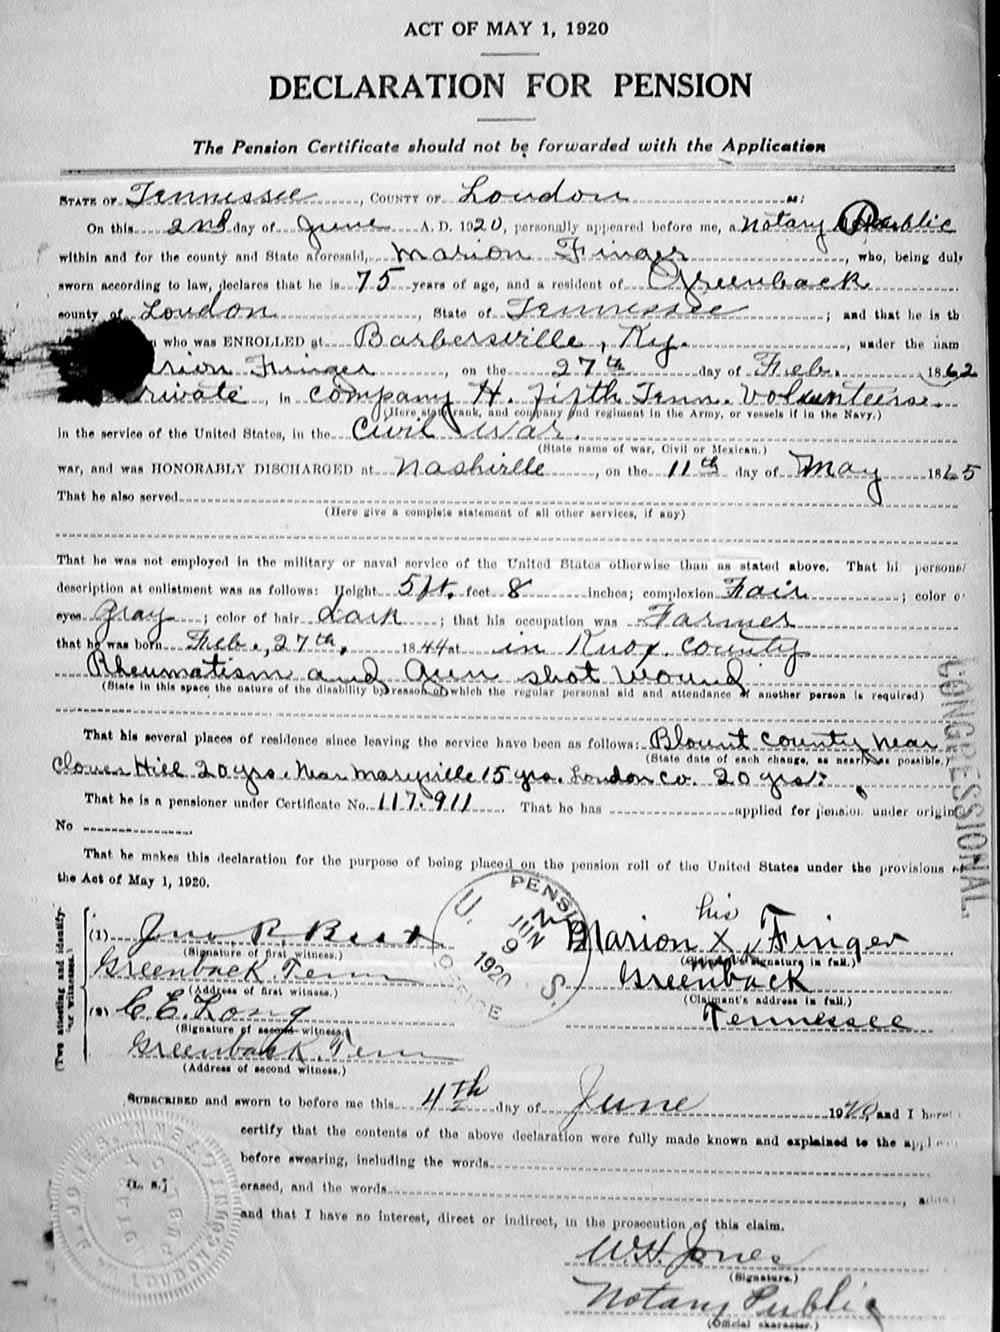 ACT OF MAY 1, 1920
DECLARATION FOR PENSION
The Pension Certificate should not be forwarded with the Application
STATE OF Tennessee, COUNTY OF Loudon ss:
On this 2nd day of June A. D. 1920, personally appeared before me, a Notary Public
within and for the county and State aforesaid, Marion Finger, who, being dul
sworn according to law, declares that he is 75 years of age, and a resident of Greenback
county of Loudon, State of Tennessee; and that he is th
who was ENROLLED at Barbersville, Ky., under the nam
rion Finger, on the 27th day of Feb. 1862
rivate, in Company H. Fifth Tenn. Volunteers.
(Here state rank, and company and regiment in the Army, or vessels if in the Navy.)
in the service of the United States, in the Civil War.
(State name of war, Civil or Mexican.)
war, and was HONORABLY DISCHARGED at Nashville, on the 11th day of May 1865
That he also served
(Here give a complete statement of all other services, if any)
That he was not employed in the military or naval service of the United States otherwise than as stated above. That hi persona
description at enlistment was as follows: Height 5 ft. feet 8 inches; complexion Fair; color o
eyes Gray; color of hair dark; that his occupation was Farmer
that he was born Feb., 27th, 1844 at in Knox County
Rheumatism and Gun shot wound
(State in this space the nature of the disability by reason of which the regular personal aid and attendance of another person is required)
That his several places of residence since leaving the service have been as follows: Blount County near
(State date of each change, as nearly as possible.)
Clover Hill 20 yrs. Near Maryville 15 yrs. Loudon Co. 20 yrs.
That he is a pensioner under Certificate No. 117.911. That he has applied for pension under origin
No
CONGRESSIONAL
That he makes this declaration for the purpose of being placed on the pension roll of the United States under the provisions
the Act of May 1, 1920.
U. S. PENSION OFFICE
JUN 9 1920
(Two attesting and identifying witnesses.)
(1) Jno. R. Best
(Signature of first witness.)
Greenback Tenn
(Address of first witness.)
(2) C. E. Long
(Signature of second witness)
Greenback Tenn
(Address of second witness.)
his
Marion X Finger
mark
(Claimant's signature in full.)
Greenback
(Claimant's address in full.)
Tennessee
SUBSCRIBED and sworn to before me this 4th day of June 1920, and I here
certify that the contents of the above declaration were fully made known and explained to the appl
before swearing, including the words
erased, and the words, add
and that I have no interest, direct or indirect, in the prosecution of this claim.
(L. S.)
NOTARY PUBLIC
LOUDON COUNTY
W. H. Jones
(Signature.)
Notary Public
(Official character.)